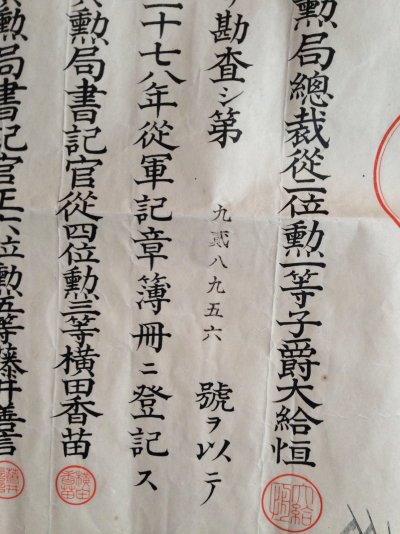 勳局總裁從二位勳一等子爵大給恒
勘査シ第九貳八九五六號ヲ以テ
二十七八年從軍記章簿冊ニ登記ス
勳局書記官從四位勳三等横田香苗
勳局書記官正六位勳五等藤井善言
横田香苗